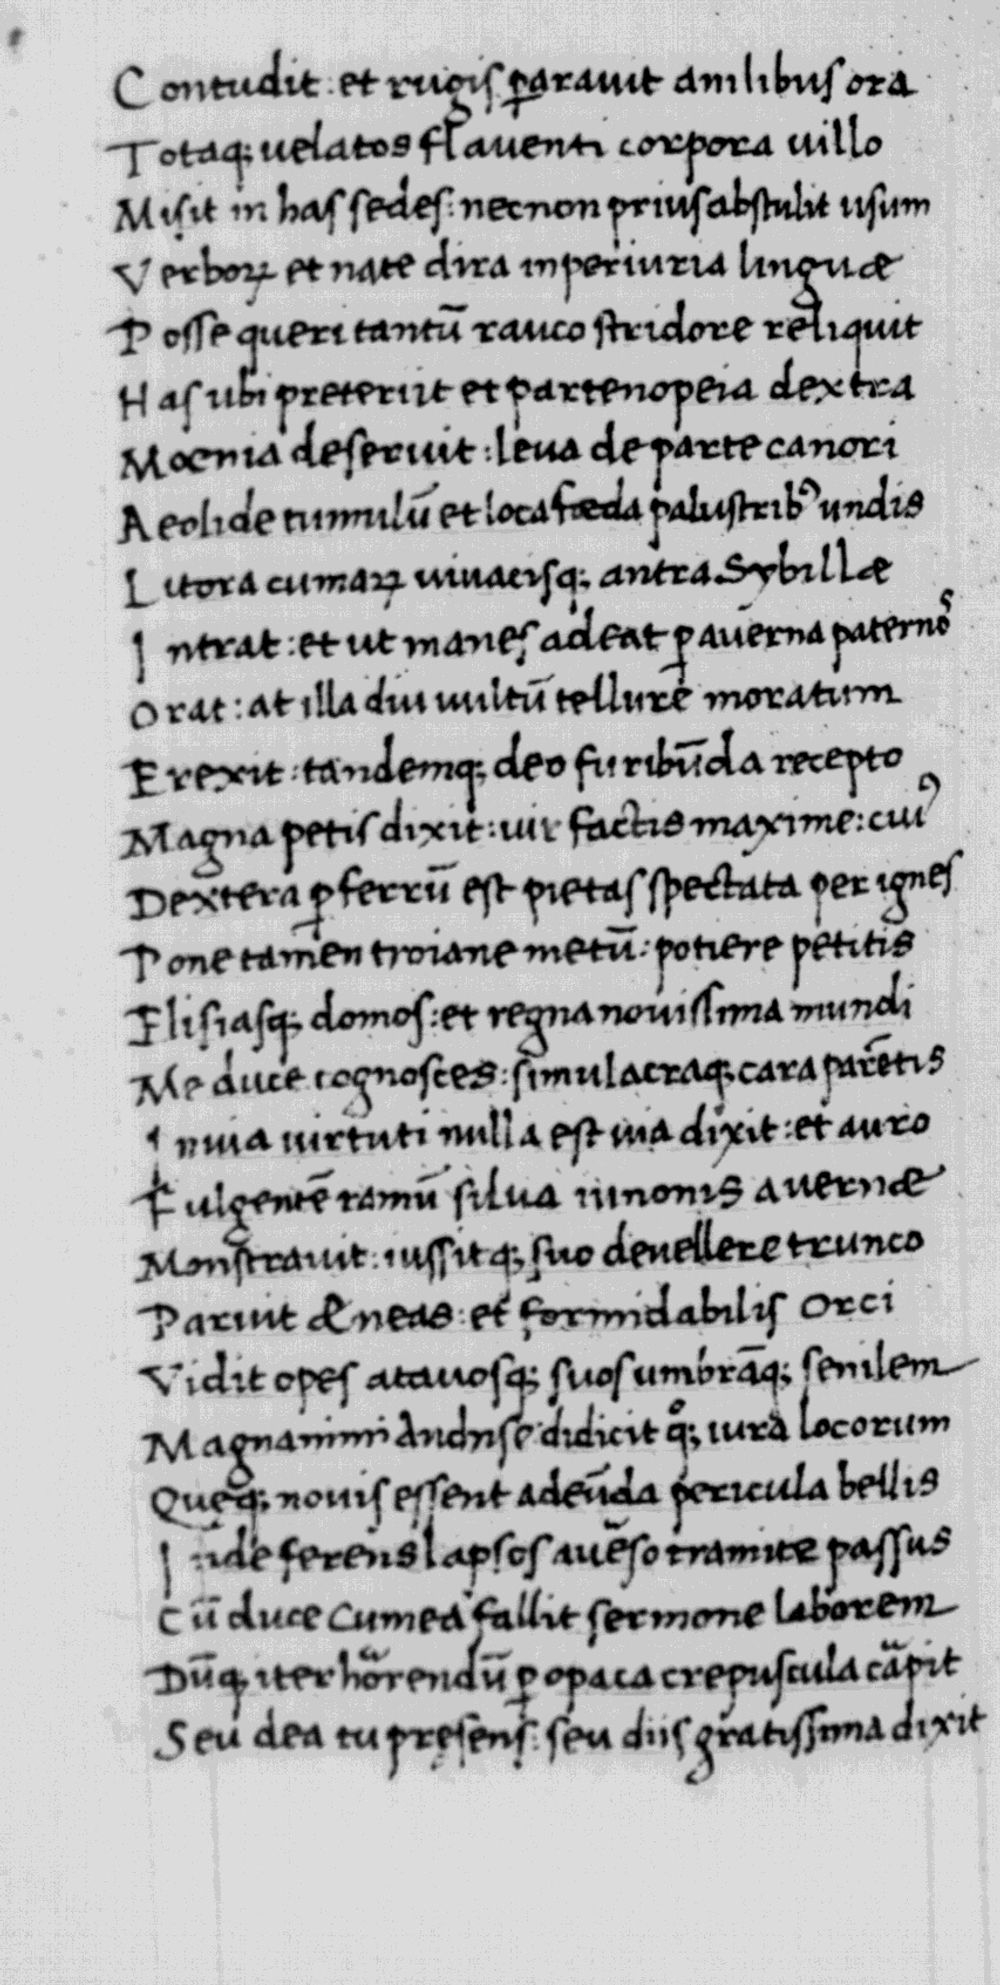 Contudit: et rugis ꝑarauit anilibus ora
Totaq; uelatos flauenti corpora uillo
Misit in has sedes: necnon prius abstulit usum
Verboꝝ et nate dira in periuria linguæ
Posse queri tantū rauco stridore reliquit
Has ubi preteriit et partenopeia dextra
Moenia deseruit: leua de parte canori
Aeolide tumulū et loca fœda palustribꝰ undis
Litora cumaꝝ uiuacisq; antra Sybillæ
Intrat: et ut manes adeat ꝑ auerna paternoˢ
Orat: at illa diu uultū tellure moratum
Erexit: tandemq; deo furibūda recepto
Magna petis dixit: uir factis maxime: cuiꝰ
Dextera ꝑ ferrū est pietas spectata per ignes
Pone tamen troiane metū: potiere petitis
Elisiasq; domos: et regna nouissima mundi
Me duce cognosces: simulacraq; cara parētis
Inuia uirtuti nulla est uia dixit: et auro
Fulgentē ramū silua iunonis auernæ
Monstrauit: iussitq; suo deuellere trunco
Paruit æneas: et formidabilis orci
Vidit opes atauosq; suos umbrāq; senilem
Magnanimi Anchise: didicit q°; iura locorum
Queq; nouis essent adeūda pericula bellis
Inde ferens lapsos auēso tramite passus
Cū duce cumea fallit sermone laborem
Dūq; iter horrendū ꝑ opaca crepuscula cᵃpit
Seu dea tu pręsens: seu diis gratissima dixit